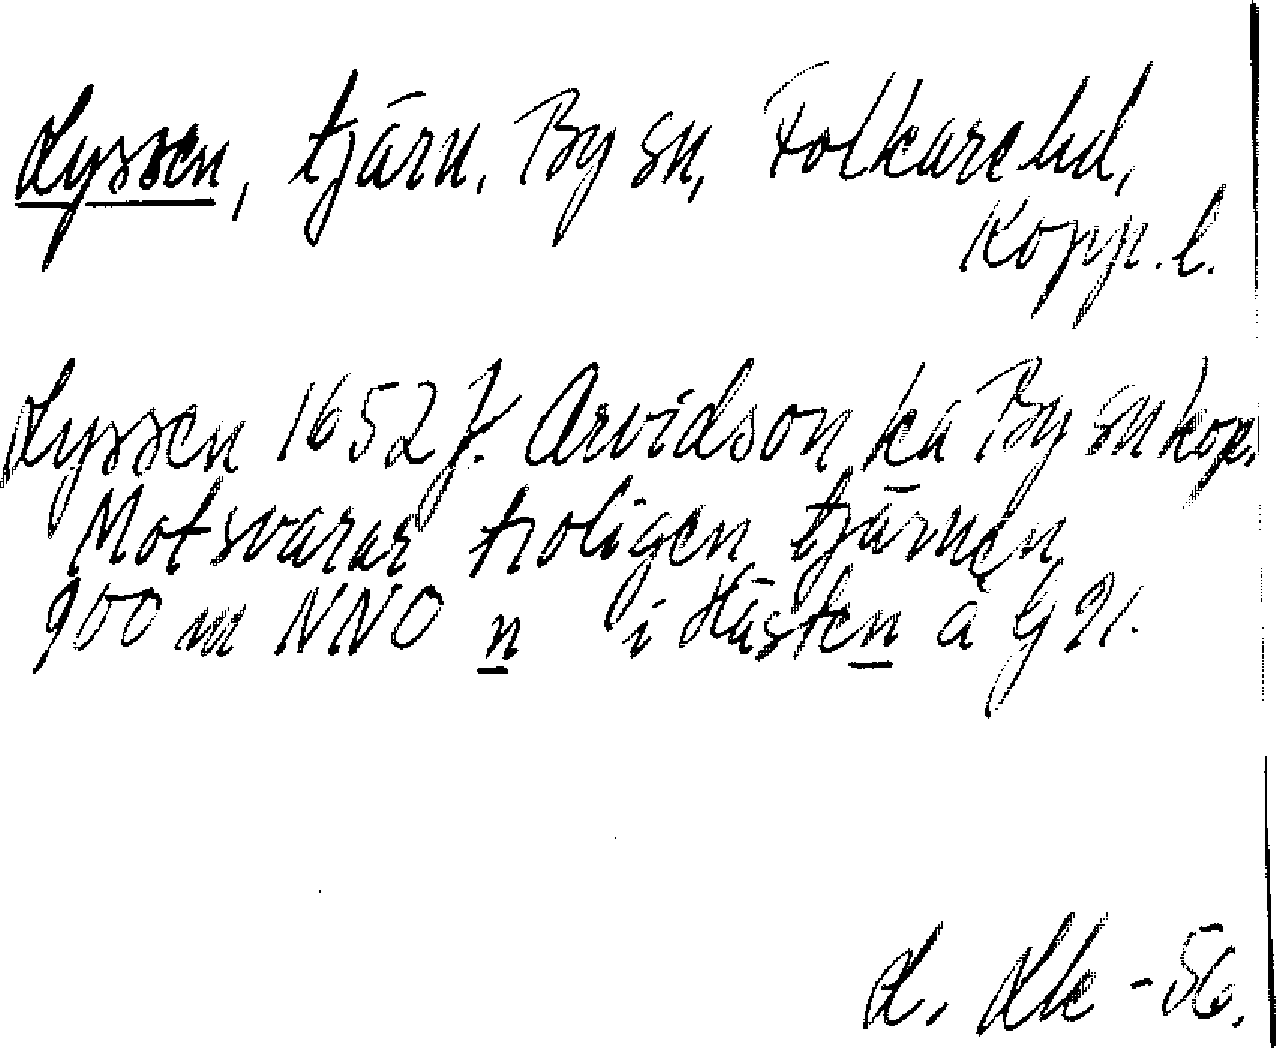 Lyssen, tjärn, By sn, Folkare hd,
Kopp. l.
Lyssen 1652 J. Arvidson ka By sn kop.
Motsvarar troligen tjärnen
900 m NNO n i Hästen å G 91.
L. Lk -56.